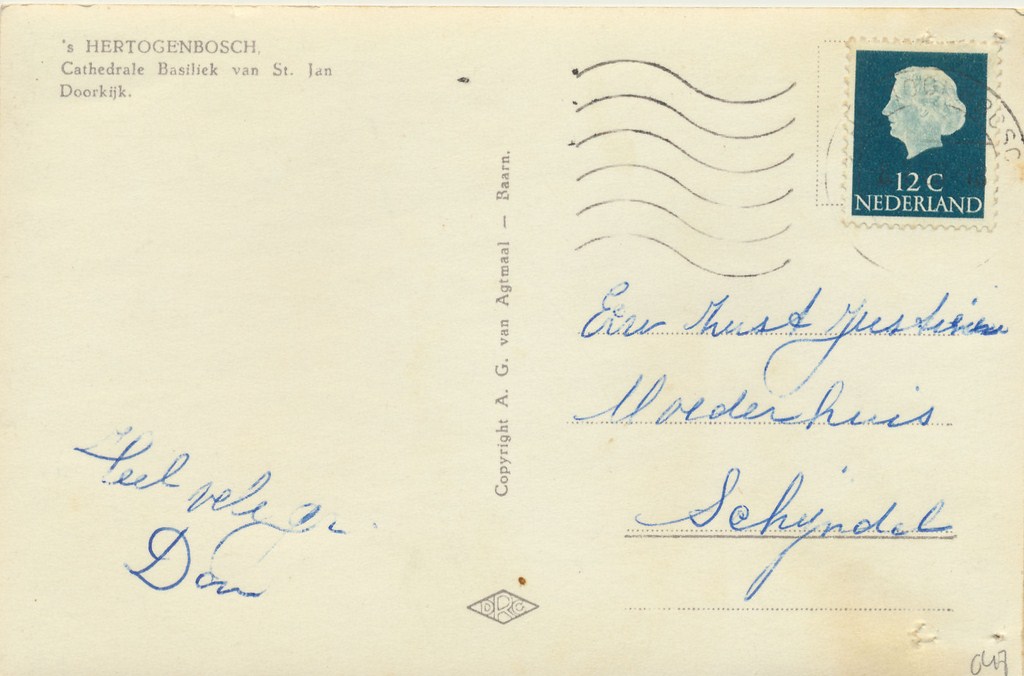 's HERTOGENBOSCH.
Cathedrale Basiliek van St. Jan
Doorkijk.
Copyright A. G. van Agtmaal — Baarn.
12 C
NEDERLAND
Eerw Justine
Moederhuis
Schijndel
Heel vele gr.